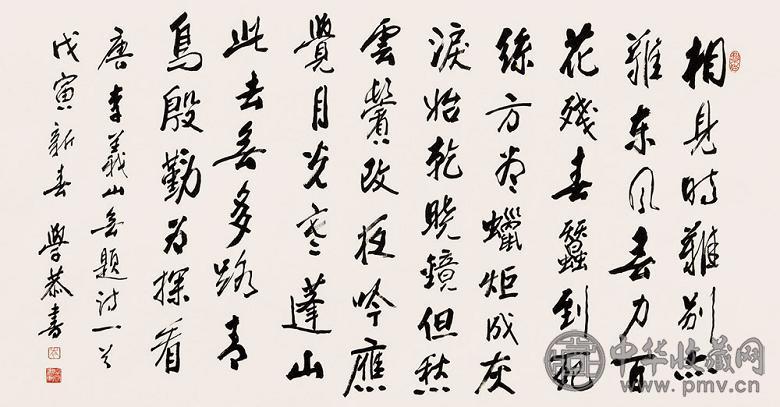 相見時難別亦
難東風無力百
花殘春蠶到死
絲方盡蠟炬成灰
淚始乾曉鏡但愁
雲鬢改夜吟應
覺月光寒蓬山
此去無多路青
鳥殷勤為探看
唐李義山無題詩一首
戊寅新春 學恭書
中华收藏网
www.pmv.cn